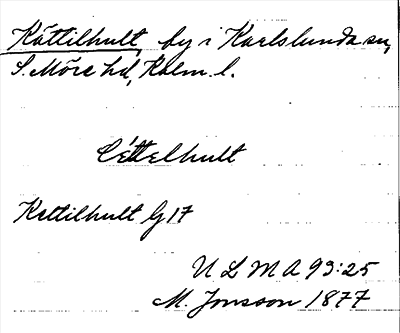 Kättilhult, by i Karlslunda sn,
S. Möre hd, Kalm. l.
Céttelhult
Kettilhult G 17
U L M A 93:25
M. Jonsson 1877